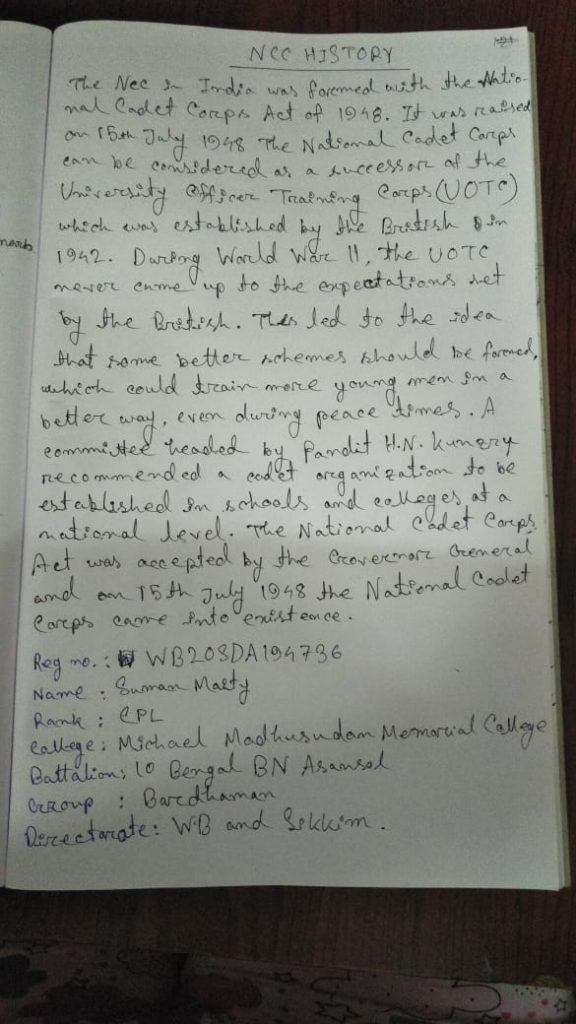 NCC HISTORY
The Ncc in India was formed with the Natio-
nal Cadet Corps Act of 1948. It was raised
on 15th July 1948 The National Cadet Corps
can be considered as a successor of the
University Officer Training Corps(UOTC)
which was established by the British in
1942. During World War II, the UOTC
never came up to the expectations set
by the British. This led to the idea
that some better schemes should be formed,
which could train more young men in a
better way, even during peace times. A
committee headed by Pandit H.N. Kunzru
recommended a cadet organization to be
established in schools and colleges at a
national level. The National Cadet Corps
Act was accepted by the Governor General
and on 15th July 1948 the National Cadet
Corps came into existence.
Reg no.: WB20SDA194736
Name : Suman Maity
Rank : CPL
College: Michael Madhusudam Memorial College
Battalion: 10 Bengal BN Asansol
Group : Bardhaman
Directorate: WB and Sikkim.